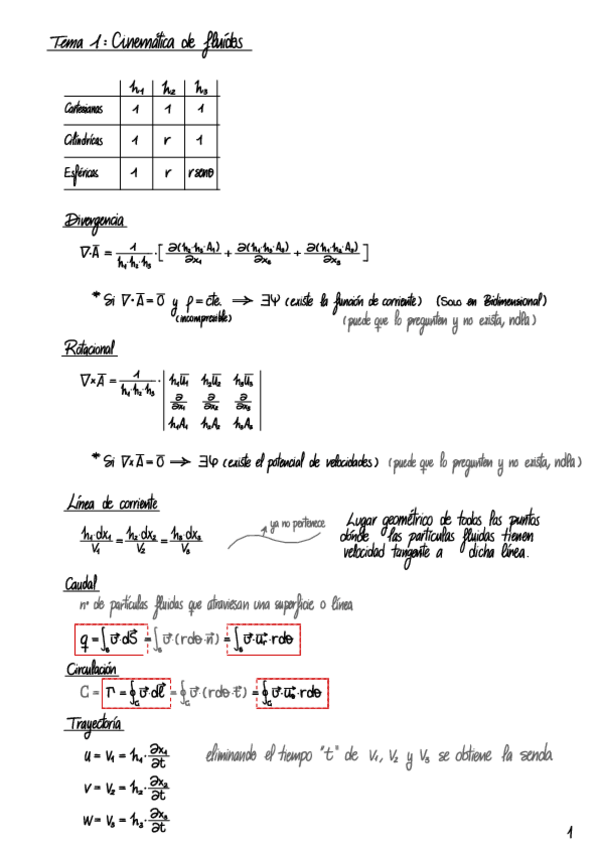 Tema 1: Cinemática de fluidos
h₁ h₂ h₃
Cartesianas 1 1 1
Cilíndricas 1 r 1
Esféricas 1 r r senθ
Divergencia
∇·A̅ = 1/(h₁·h₂·h₃) · [ ∂(h₂·h₃·A₁)/∂x₁ + ∂(h₁·h₃·A₂)/∂x₂ + ∂(h₁·h₂·A₃)/∂x₃ ]
* Si ∇·A̅ = 0̅ y ρ = cte. ⟹ ∃Ψ (existe la función de corriente) (Solo en Bidimensional)
(incompresible) (puede que lo pregunten y no exista, ndlpa)
Rotacional
∇×A̅ = 1/(h₁·h₂·h₃) · | h₁u̅₁ h₂u̅₂ h₃u̅₃ |
| ∂/∂x₁ ∂/∂x₂ ∂/∂x₃ |
| h₁A₁ h₂A₂ h₃A₃ |
* Si ∇×A̅ = 0̅ ⟶ ∃φ (existe el potencial de velocidades) (puede que lo pregunten y no exista, ndlpa)
Línea de corriente
h₁·dx₁/V₁ = h₂·dx₂/V₂ = h₃·dx₃/V₃
ya no pertenece
Lugar geométrico de todos los puntos
dónde las partículas fluidas tienen
velocidad tangente a dicha línea.
Caudal
nº de partículas fluidas que atraviesan una superficie o línea
q = ∫ₛ v⃗·dS⃗ = ∫ₛ v⃗·(r dθ·n⃗) = ∫ₛ v⃗·u⃗ᵣ·r dθ
Circulación
C = Γ = ∮_G v⃗·dl⃗ = ∮_G v⃗·(r dθ·t⃗) = ∮_G v⃗·u⃗_θ·r dθ
Trayectoria
u = V₁ = h₁·∂x₁/∂t eliminando el tiempo "t" de V₁, V₂ y V₃ se obtiene la senda
v = V₂ = h₂·∂x₂/∂t
w = V₃ = h₃·∂x₃/∂t
1